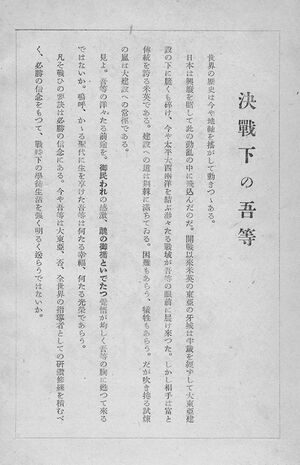 決戰下の吾等
世界の歷史は今や地軸を搖がして動きつゝある。
日本は興廢を賭して此の動亂の中に飛込んだのだ。開戰以來米英の東亞の牙城は半歲を經ずして大東亞建
設の下に脆くも碎け、今や太平大西兩洋を結ぶ渺々たる戰域が吾等の眼前に展け來つた。しかし相手は富と
傳統を誇る米英である。建設への道は荊棘に滿ちてゐる。困難もあらう、犧牲もあらう。だが吹き捲る試煉
の嵐は大建設への常道である。
見よ。吾等の洋々たる前途を。御民われの感激、醜の御楯といでたつ覺悟が均しく吾等の胸に甦つて來る
ではないか。嗚呼、かゝる聖代に生を享けた吾等は何たる幸福、何たる光榮であらう。
凡そ戰ひの要訣は必勝の信念にある。今や吾等は大東亞、否、全世界の指導者としての研鑽修練を積むべ
く、必勝の信念をもつて、戰時下の學徒生活を强く明るく送らうではないか。